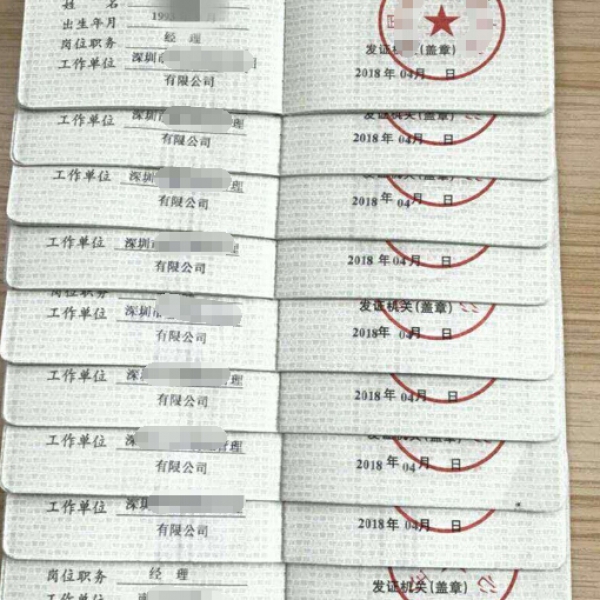 姓 名
出生年月 19
岗位职务 经 理
工作单位 深圳
有限公司
发证机关(盖章)
2018 年 04月 日
工作单位 深圳 理
有限公司
发证机关(盖章)
2018 年 04月 日
工作单位 深圳 理
有限公司
2018 年 04月 日
工作单位 深圳 理
有限公司
2018 年 04月 日
岗位职务
工作单位 深圳
有限公司
发证机关(盖章)
2018年 04月 日
工作单位 深 理
有限公司
2018 年 04月 日
工作单位 深 管理
有限公司
发证机关(盖章)
2018 年 04月 日
工作单位 深
有限公司
2018 年 04月 日
岗位职务 经 理
工作单位
发证机关(盖章)